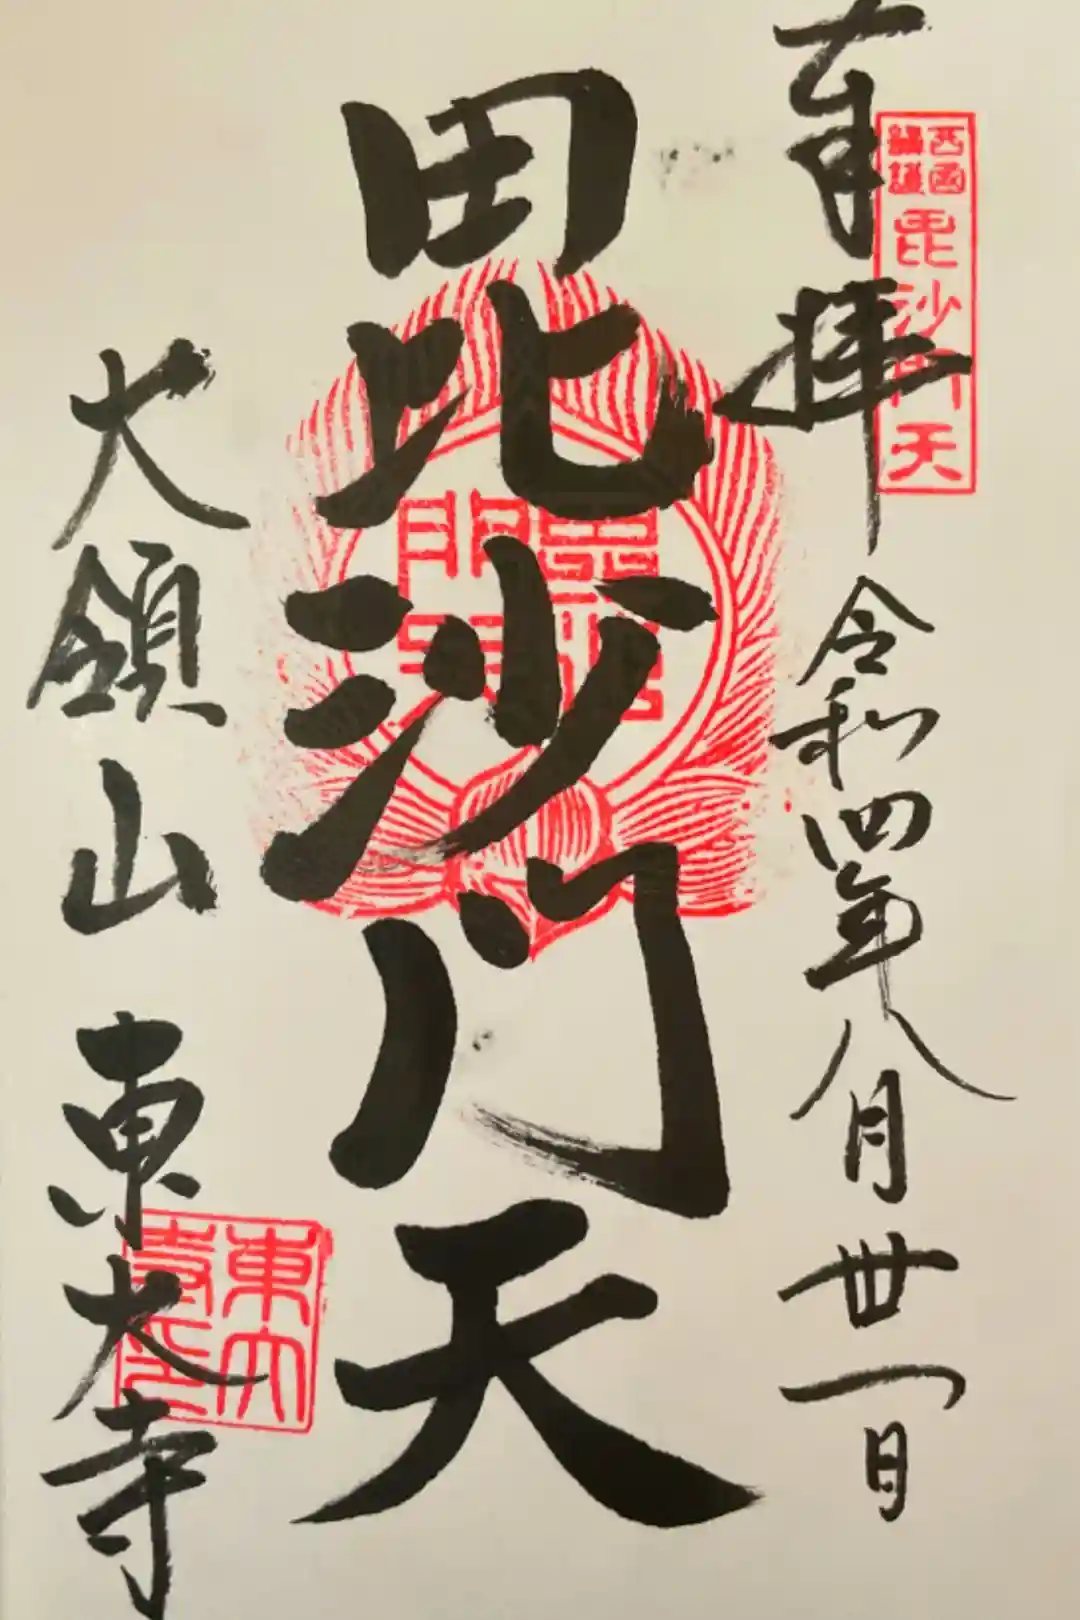 奉拝
西国鎮護
毘沙門天
令和四年八月卅一日
毘沙門天
大領山 東大寺
東大寺印